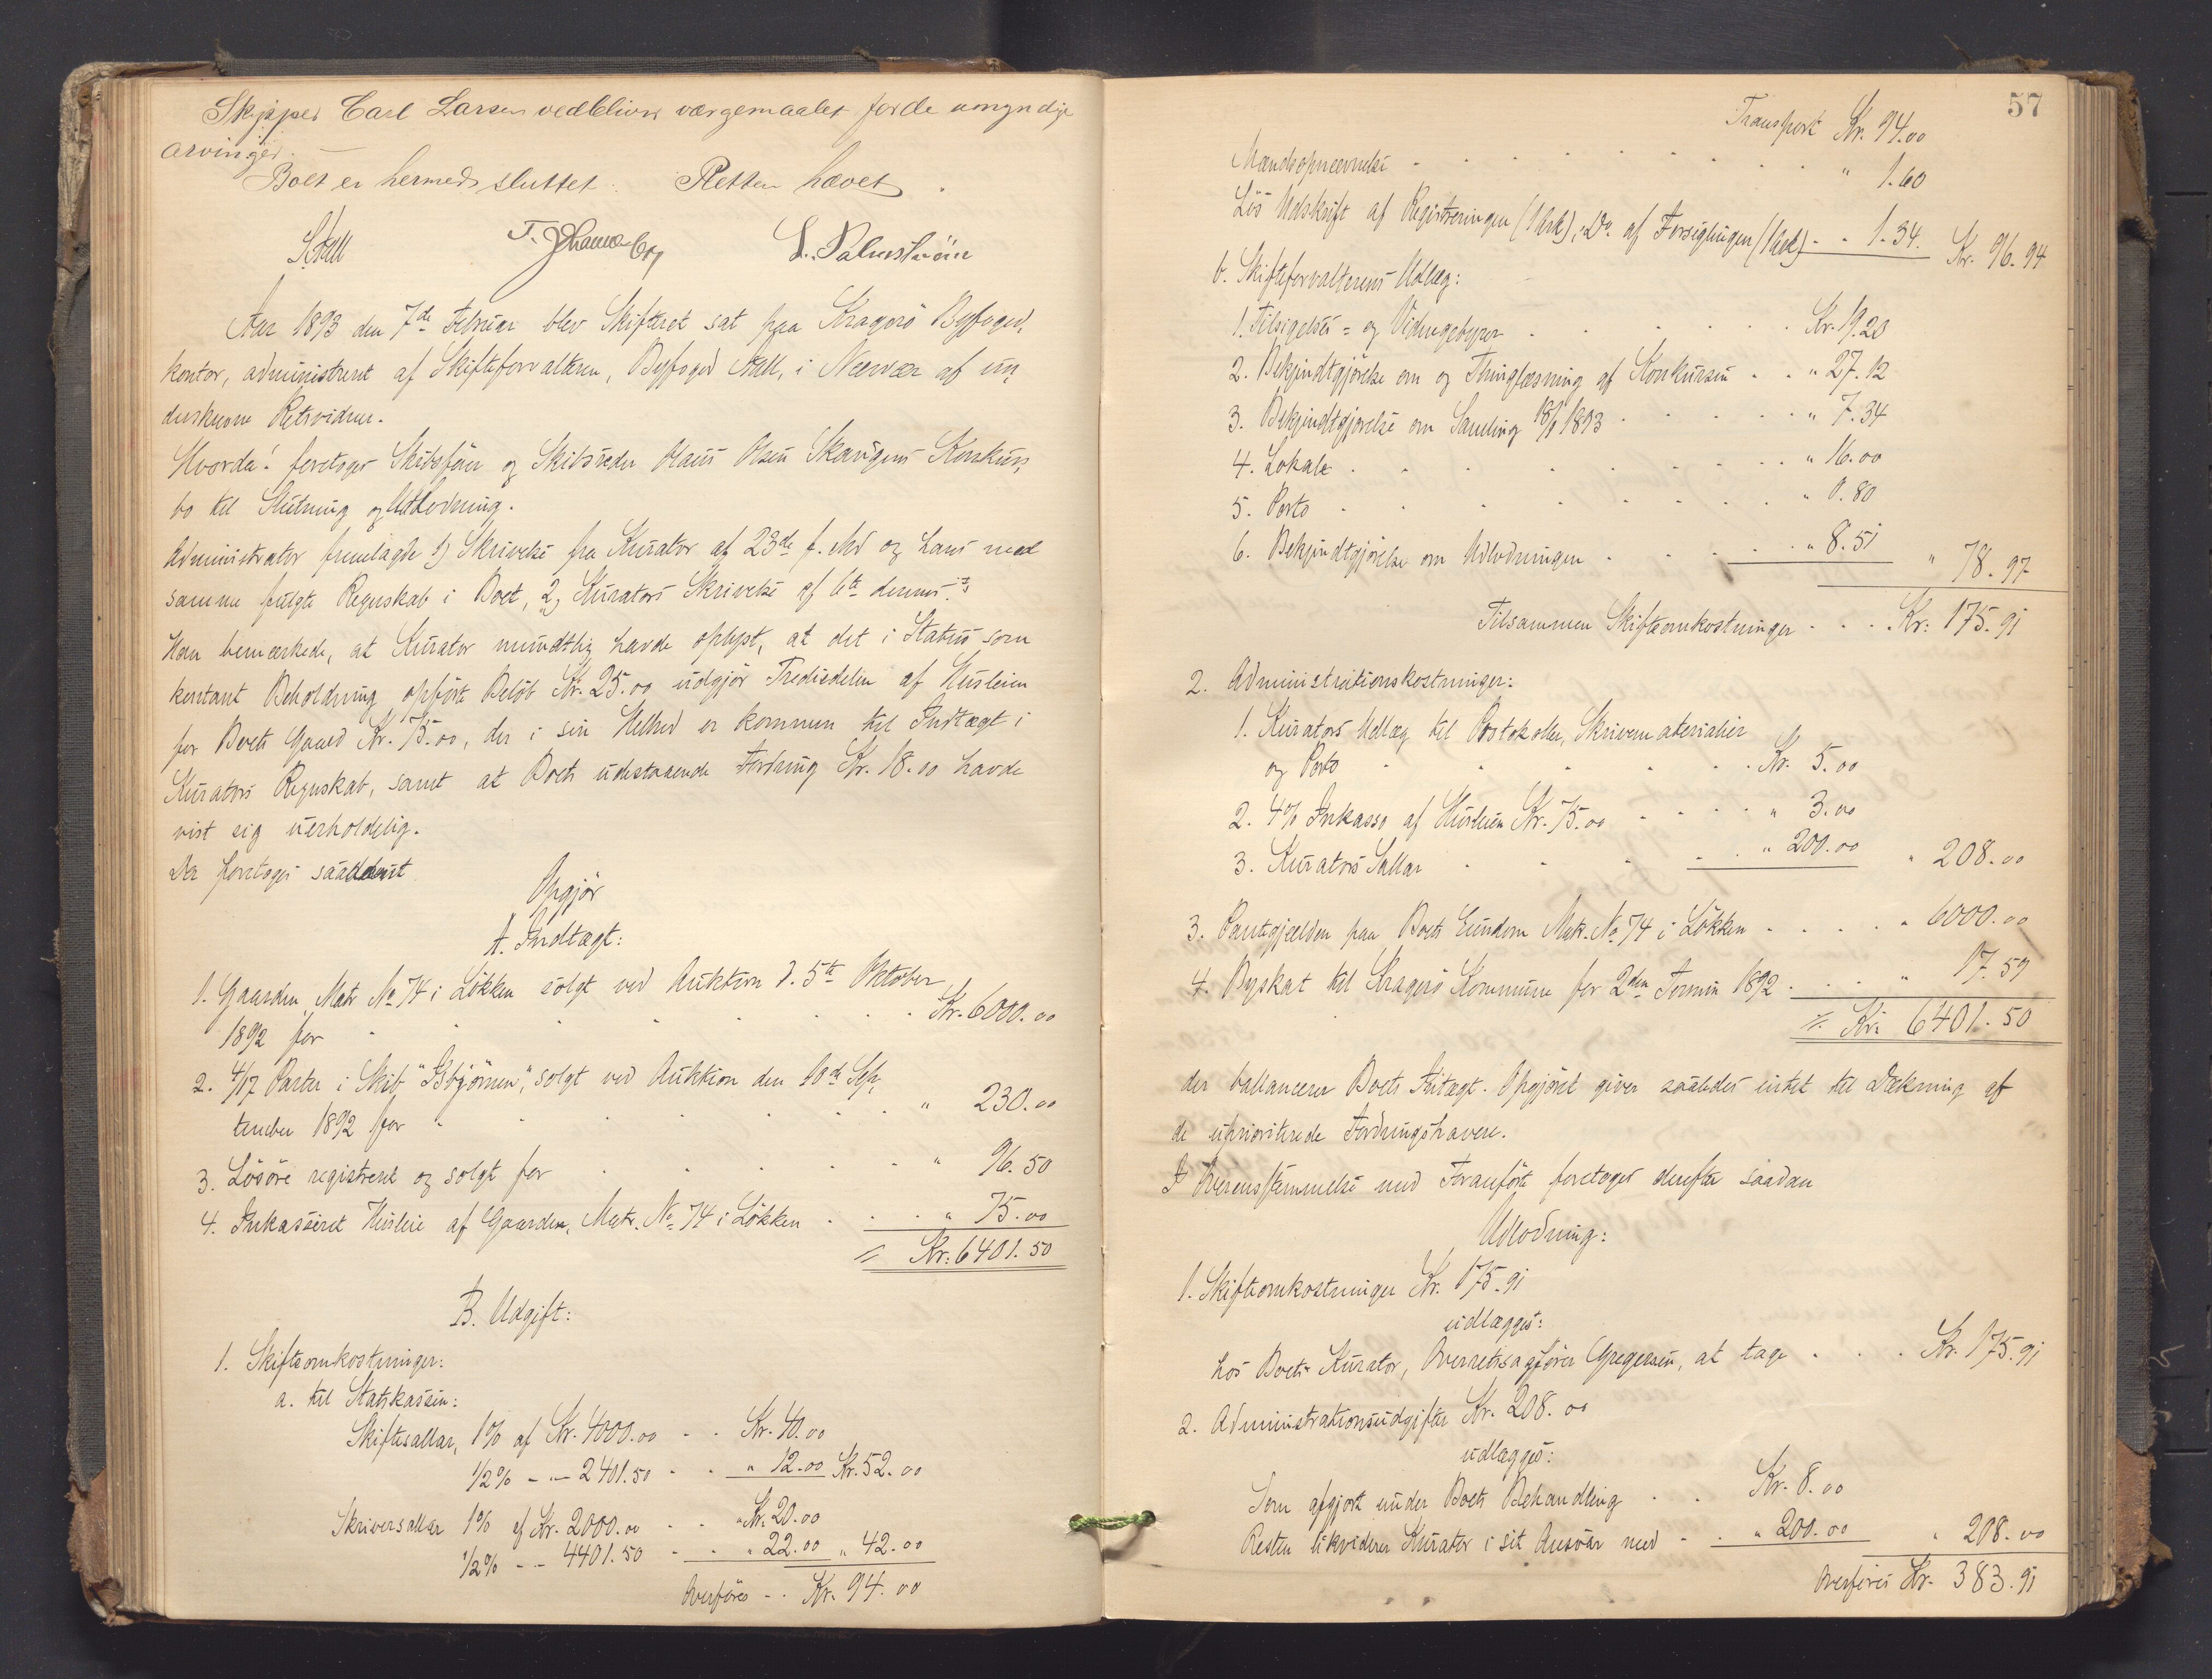 Skipper Carl Larsen vedbliver værgemaalet for de umyndige
arvinger. —
Boet er hermed sluttet. Retten hævet.
Aar 1893 den 7de Februar blev Skifteret sat paa Kragerö Byfoged-
kontor, administreret af Skifteforvalteren, Byfoged Aall, i Nærvær af un-
derskrevne Retsvidner.
Hvorda! foretoges Skibsförer og Skibsreder Claus Olsen Skarigens Konkurs-
bo til Slutning og Udlodning.
Administrator fremlagde 1) Skrivelse fra Kurator af 23de f. Md og hans med
samme fulgte Regnskab i Boet, 2, Kurators Skrivelse af 6te dennes.
Han bemærkede, at Kurator mundtlig havde oplyst, at det i Status som
kontant Beholdning opförte Belöb Kr. 25.00 udgjör Trediedelen af Husleien
for Boets Gaard Kr. 75.00, der i sin Helhed er kommen til Indtægt i
Kurators Regnskab, samt at Boets udestaaende Fordring Kr. 18.00 havde
vist sig uerholdelig.
Der foretoges saadant
Opgjör
A. Indtægt:
1. Gaarden, Matr No 74 i Lökken solgt ved Auktion d. 5te Oktober
1892 for . . . . Kr. 6000.00
2. 4/17 Parter i Skib "Isbjörnen", solgt ved Auktion den 10de Sep-
tember 1892 for . . . . " 230.00
3. Lösöre registreret og solgt for . . . . " 96.50
4. Inkasseret Husleie af Gaarden, Matr. No 74 i Lökken . . . " 75.00
Kr. 6401.50
B. Udgift:
1. Skifteomkostninger:
a. til Statskassen:
Skiftesallar, 1% af Kr. 4000.00 . . Kr. 40.00
1/2% - " - 2401.50 . . " 12.00 Kr. 52.00
Skriversallar 1% af Kr. 2000.00 . . Kr. 20.00
1/2% - - 4401.50 . . " 22.00 " 42.00
Overföres . . Kr. 94.00
57
Transport Kr. 94.00
Mandsopnævnelse . . . . " 1.60
Lös Udskrift af Registreringen (1 Ark), Do. af Forseglingen (1 Ark) . . 1.34. Kr. 96.94
b. Skifteforvalterens Udlæg:
1. Tilsigelses- og Vidnegebyrer . . . . Kr. 19.20
2. Bekjendtgjörelse om og Thinglæsning af Konkursen . . " 27.12
3. Bekjendtgjörelse om Samling 18/1 1893 . . . . " 7.34
4. Lokale . . . . " 16.00
5. Porto . . . . " 0.80
6. Bekjendtgjörelse om Udlodningen . . . . " 8.51 " 78.97
Tilsammen Skifteomkostninger . . . Kr. 175.91
2. Administrationskostninger:
1. Kurators Udlæg til Protokoller, Skrivematerialier
og Porto . . . . Kr. 5.00
2. 4% Inkasso af Husleien Kr. 75.00 . . . . " 3.00
3. Kurators Sallar . . . . " 200.00 " 208.00
3. Pantegjælden paa Boets Eiendom Matr. No 74 i Lökken . . . . " 6000.00
4. Byskat til Kragerö Kommune for 2den Termin 1892 . . . " 17.59
Kr. 6401.50
der ballancerer Boets Indtægt. Opgjöret giver saaledes intet til Dækning af
de uprioriterede Fordringshavere.
I Overensstemmelse med Foranförte foretoges derefter saadan
Udlodning:
1. Skifteomkostninger Kr. 175.91
udlægges:
hos Boets Kurator, Overretssagförer Gregersen, at tage . . . Kr. 175.91
2. Administrationsudgifter Kr. 208.00
udlægges:
Som afgjort under Boets Behandling . . Kr. 8.00
Resten likviderer Kurator i sit Ansvar med . . " 200.00 " 208.00
Overföres Kr. 383.91